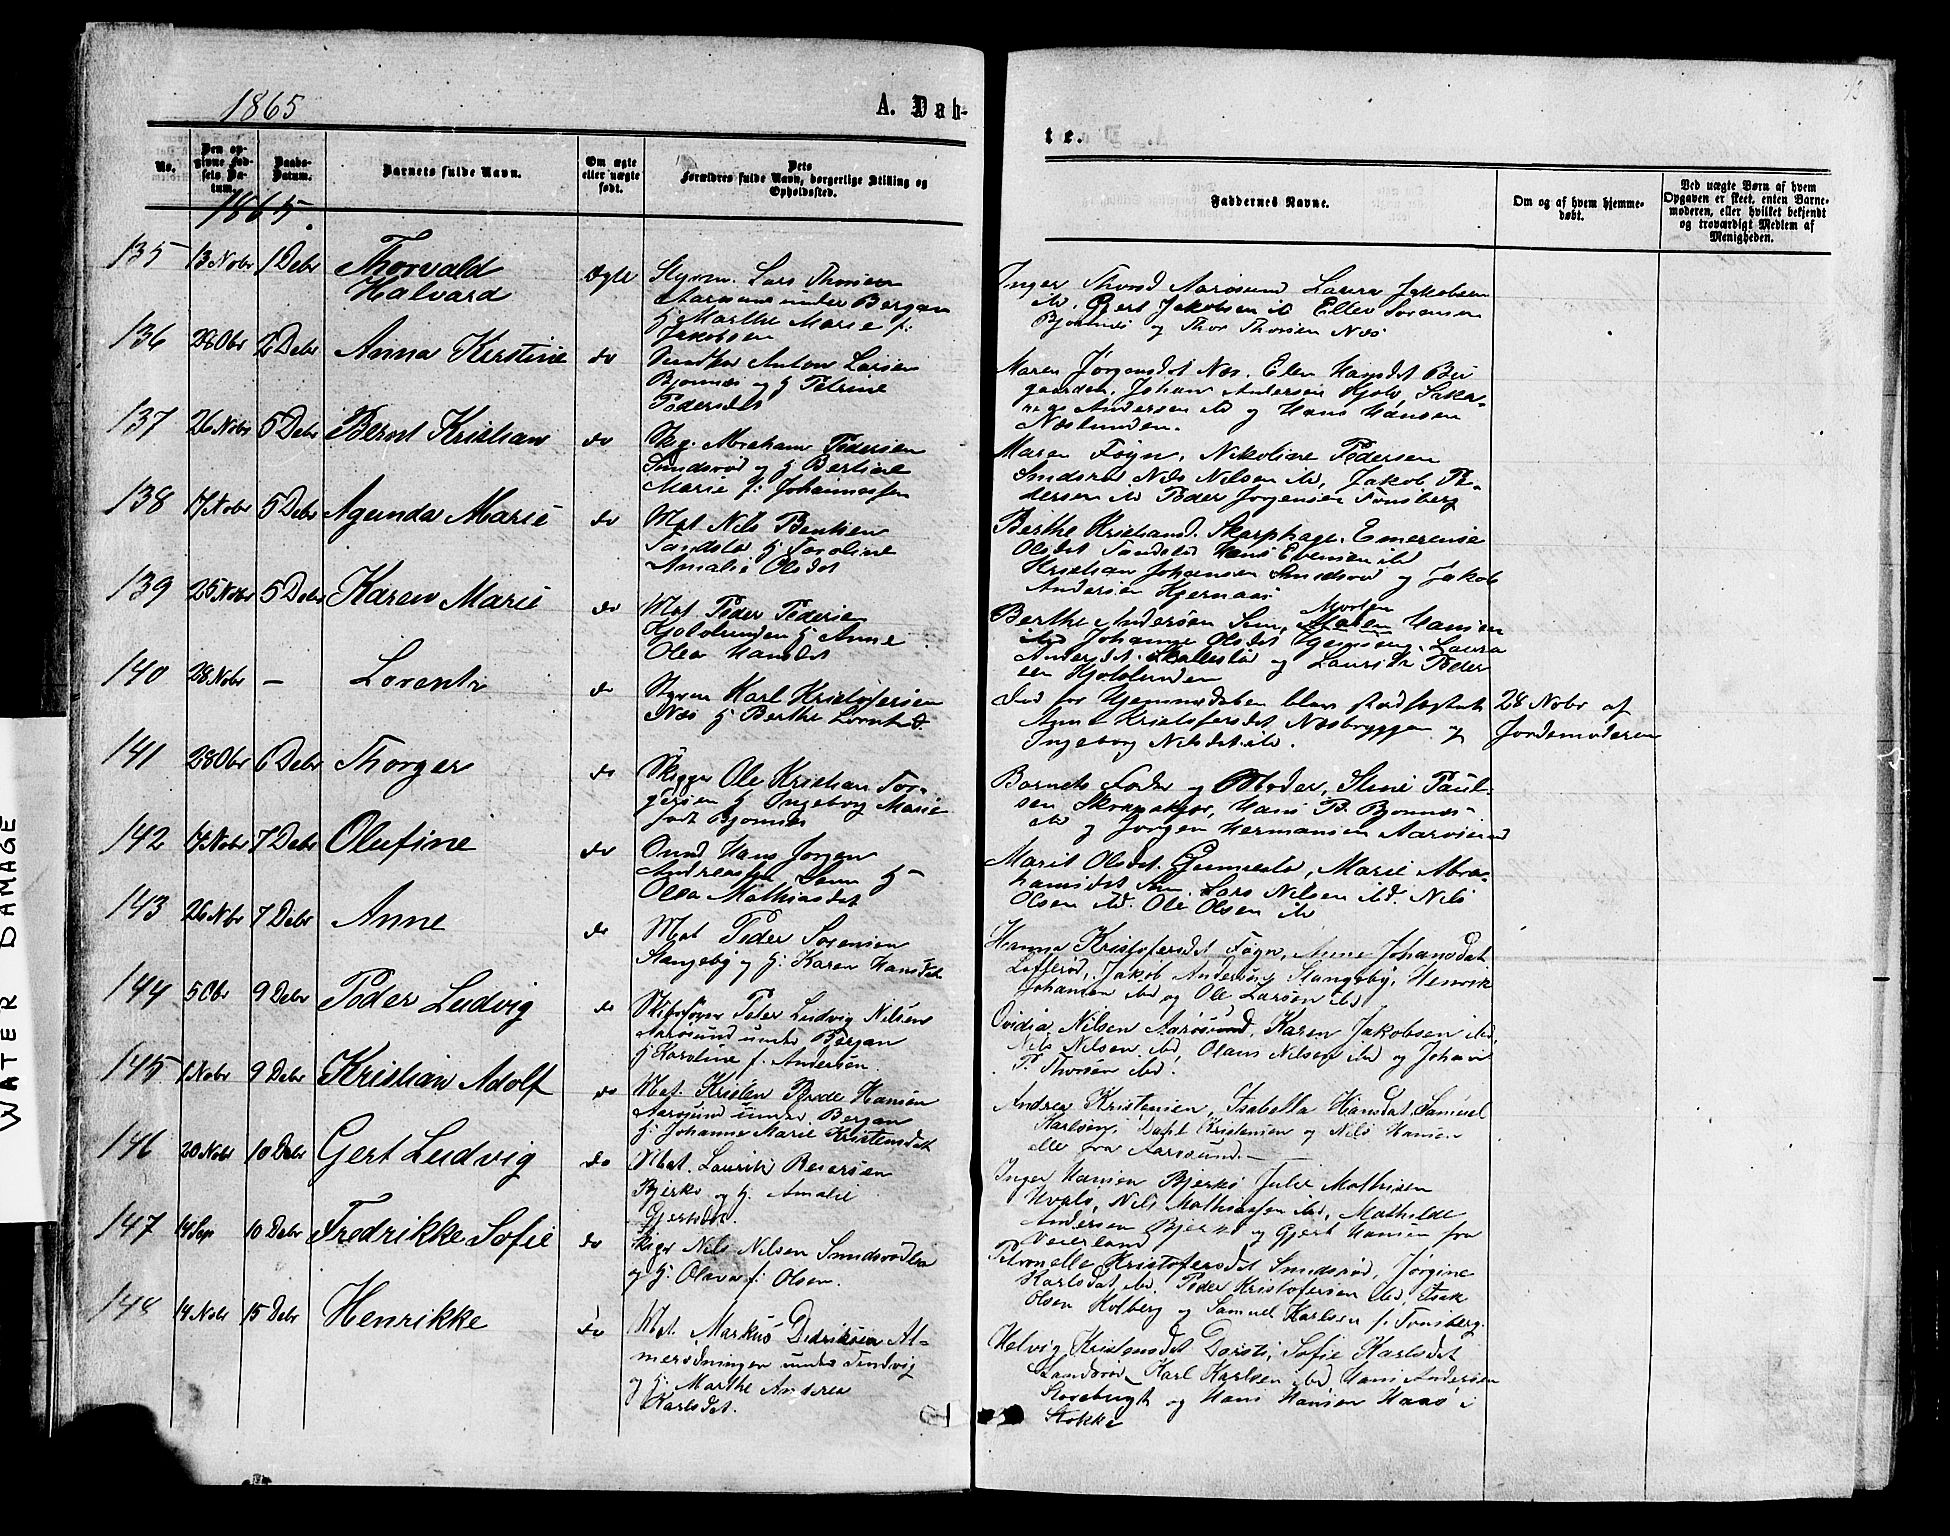 1865
A. Døb-
te.
No.
Den opgivne Fødsels Datum.
Daabs-Datum.
Barnets fulde Navn.
Om ægte eller uægte født.
Dets Forældres fulde Navn, borgerlige Stilling og Opholdssted.
Faddernes Navne.
Om og af hvem hjemmedøbt.
Ved uægte Børn af hvem Opgaven er skeet, enten Barnemoderen, eller hvilket bekjendt og troværdigt Medlem af Menigheden.
1865.
135 13 Nobr 1 Debr Thorvald Halvard Ægte
Styrm. Lars Thorsen
Aarøsund under Bergan
H Marthe Marie f:
Jakobsen
Inger Aarøsund Laura Jakobsen
ibd. Gert Jakobsen ib Ellev Sørensen
Bjønnes og Thor Thorsen Næs
136 28 Obr 2 Debr Anna Kerstine do
Anton Larsen
Bjønnes og H Petrine
Pedersdet
Maren Jørgensdet Næs. Ellen Hansdet
Johan Andersen
Andersen ibd og Hans Hansen
Næslunden.
137 26 Nobr 5 Debr Bernt Kristian do
Abraham Pedersen
Smidsrød og H Bertine
Marie f: Johannessen
Maren Føgn, Nikoline Pedersen
Smidsrød Nils Nilsen ibd, Jakob Pe-
dersen ibd Peder Jørgensen Tønsberg
138 17 Nobr 5 Debr Agunda Marie do
Mat Nils Bentsen
H Karoline
Amalie Olsdet
Berthe Skarphage. Emerense
Olsdet Hans Evensen ibd
Kristian Johansen Smidsrød og Jakob
Andersen Hjernaas
139 25 Nobr 5 Debr Karen Marie do
Mat Peder Pedersen
Kjøllunden H Anne
Olea Hansdet
Berthe Andersen Sem, Morten Hansen
ibd Johanne Olsdet Laura
Andersdet og Lauritz Peder
sen Kjøllunden
140 28 Nobr - Lorentz do
Styrm Karl Kristofersen
Næs H Berthe
Ind for Hjemmedaaben blev stadfæstet
Kristofersdet Næsbryggen og
Ingeborg Nilsdet ibd.
28 Nobr af
Jordemoderen
141 28 Obr 6 Debr Thorger do
Skipper Ole Kristian Tor-
gersen H Ingeborg Marie
født Bjønnes
Barnets Fader og Moder, Stine Paul-
sen Hans B. Bjønnes
ibd og Jørgen Hermansen Aarøsund
142 17 Nobr 7 Debr Olufine do
Hans Jørgen
Andreassen Sem H
Olea Mathiasdet
Marit Olsdet Marie Abra-
hamsdet Sem Lars Nilsen ibd. Nils
Olsen ibd. Ole Olsen ibd
143 26 Nobr 7 Debr Anne do
Mat Peder Sørensen
Stangeby og H: Karen Hansdet
Hanna Kristofersdet Føgn, Anne Johansdet
Jakob Andersen Stangeby, Henrik
Johansen ibd og Ole Larsen ibd
144 5 Obr 9 Debr Peder Ludvig do
Skibsfører Peter Ludvig Nilsen
Aarøsund under Bergan
H Karoline f. Andersen.
Ovidia Nilsen Aarøsund, Karen Jakobsen ibd,
Nils Nilsen ibd, Olaus Nilsen ibd og Johan
P. Thorsen ibd.
145 1 Nobr 9 Debr Kristian Adolf do
Mat. Kristen Hansen
Aarøsund under Bergan
H: Johanne Marie Kristensdet
Andrea Kristensen, Isabella Hansdat. Samuel
Karlsen, Kristensen og Nils Hansen
alle fra Aarøsund.
146 20 Nobr 10 Debr Gert Ludvig do
Mat. Lauritz Reiersen
Bjerkø og H. Amalie
Gjertsdet.
Inger Hansen Bjerkø Julie Mathisen
Hvalø, Nils Mathiassen ibd, Mathilde
Andersen Bjerkø og Gjert Hansen fra
Veierland
147 14 Sep 10 Debr Fredrikke Sofie do
Nils Nilsen
og H: Olava f: Olsen.
Petronelle Kristofersdet Smidsrød, Jørgine
Karlsdat ibd. Peder Kristofersen ibd, Isak
Olsen Holberg og Samuel Karlsen f. Tønsberg.
148 14 Nobr 15 Debr Henrikke do
Mat. Markus Didriksen Al-
merødningen under
og H: Marthe Andrea
Karlsdet.
Helvig Kristensdet Sofie Karlsdet
Sandørød Karl Karlsen ibd Hans Andersen
Storebugt og Hans Hansen i
Stokke
WATER DAMAGE